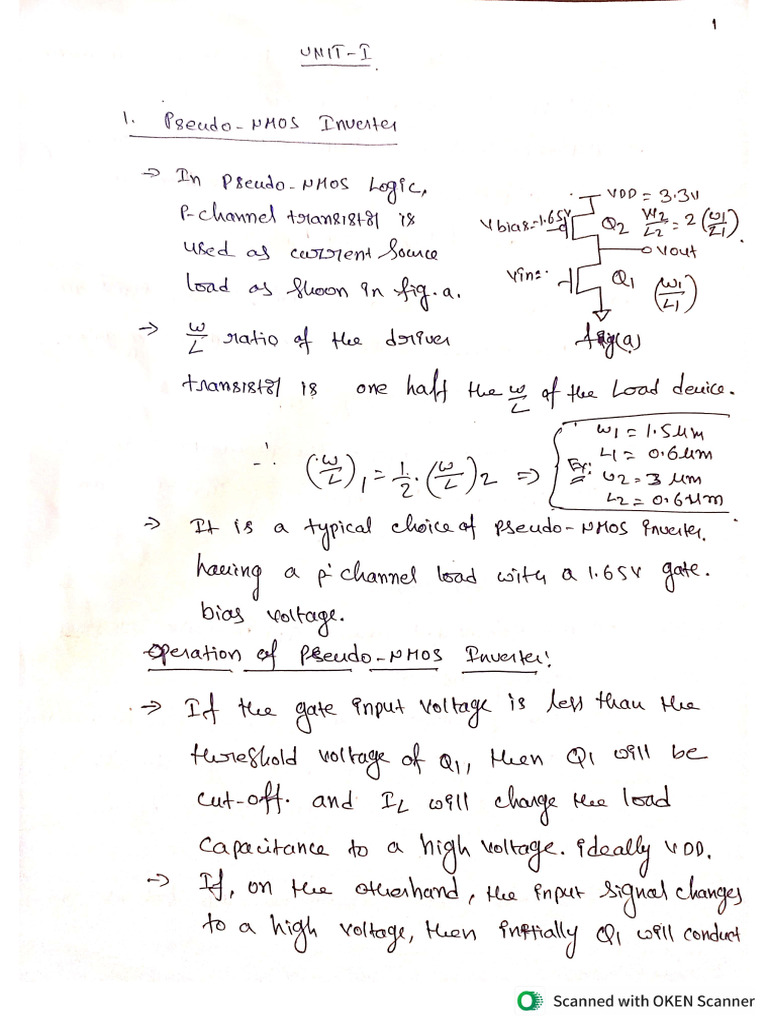 1
UNIT-I
1. Pseudo-NMOS Inverter
→ In Pseudo-NMOS Logic,
P-channel transistor is
used as current source
load as shoon in fig.a.
VDD = 3.3V
Vbias=1.65V
Q2 W2/L2 = 2 (W1/L1)
Vout
Vin
Q1 (W1/L1)
fig(a)
→ W/L ratio of the driver
transistor is one half the W/L of the Load device.
∴ (W/L)1 = 1/2 . (W/L)2 ⇒
Ex:
W1 = 1.5μm
L1 = 0.6μm
W2 = 3 μm
L2 = 0.6μm
→ It is a typical choice of Pseudo-NMOS inverter.
having a p' channel load with a 1.65V gate.
bias voltage.
Operation of Pseudo-NMOS Inverter:
→ If the gate input voltage is less than the
threshold voltage of Q1, then Q1 will be
cut-off. and IL will charge the load
capacitance to a high voltage. ideally VDD.
→ If, on the otherhand, the input signal changes
to a high voltage, then initially Q1 will conduct
Scanned with OKEN Scanner